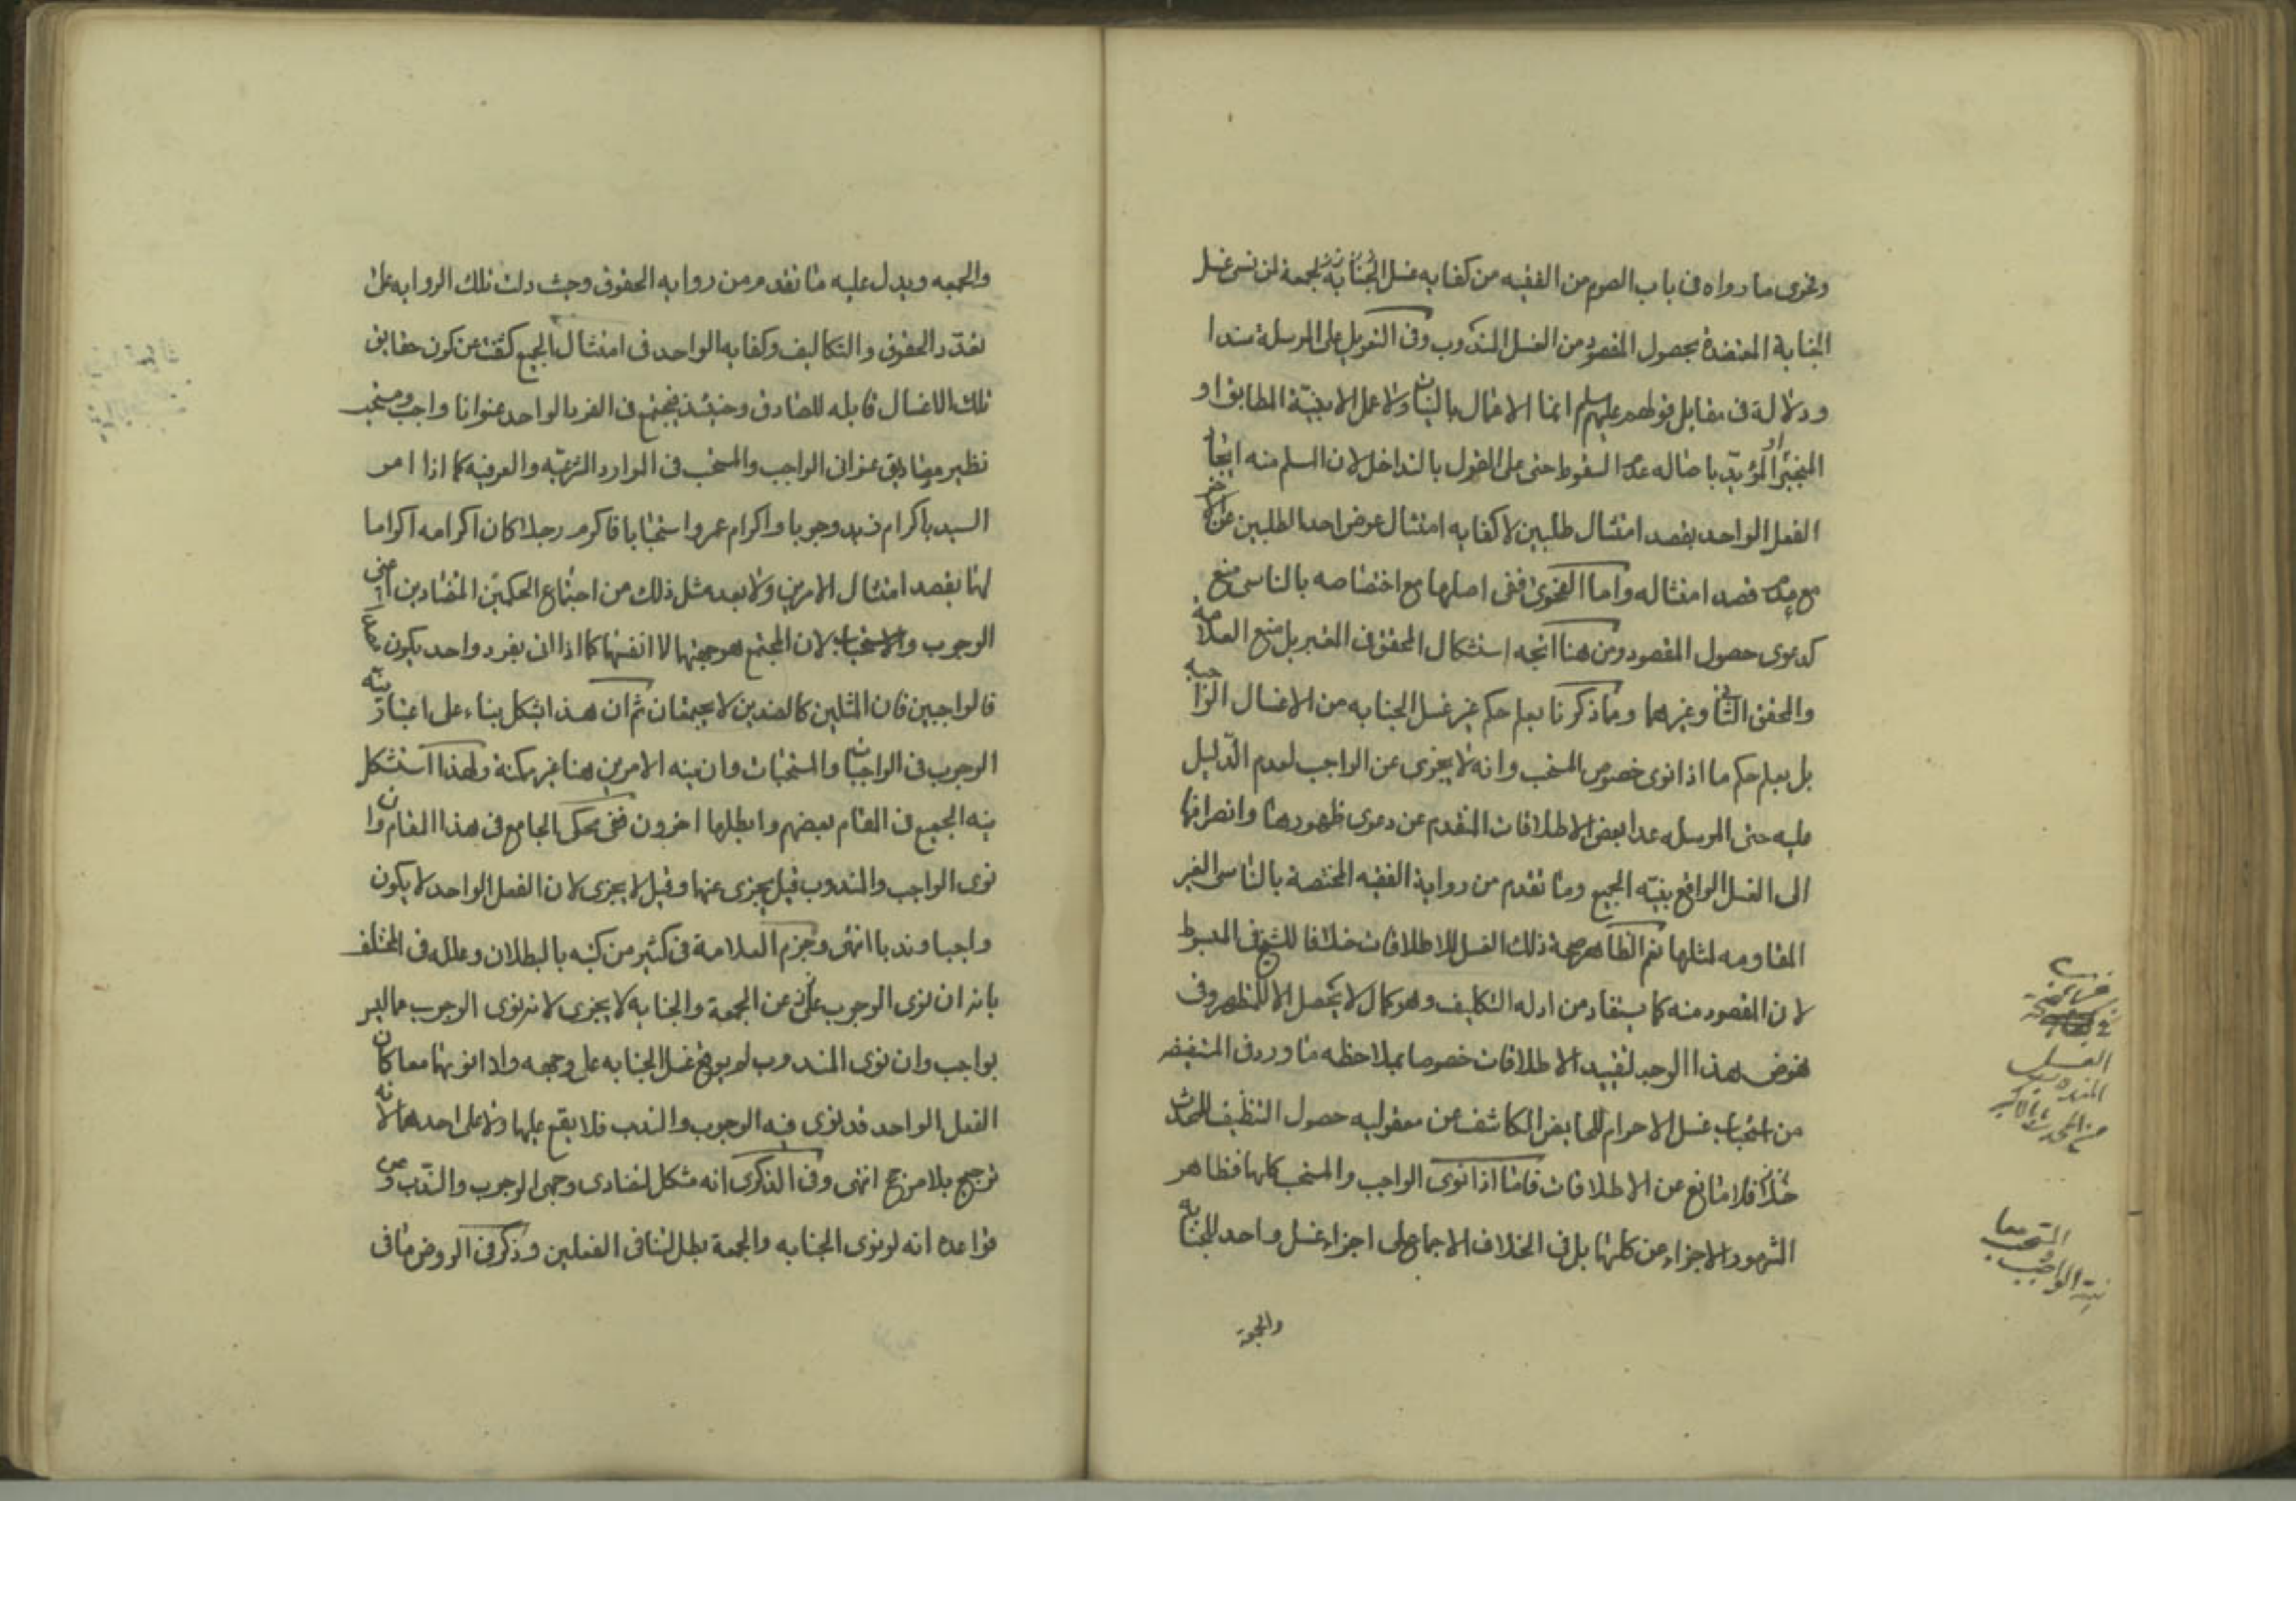 وفحوى ما رواه فى باب الصوم من الفقيه من كفايه غسل الجنابة للجمعة لمن نسى غسل
الجنابة المعتضدة بحصول المقصود من الغسل المندوب وفى التعويل على المرسلة سندا
ودلالة فى مقابل قولهم عليهم السلم انما الاعمال بالنيات ولا عمل الا بنيّة المطابق او
المنجبر او المؤيد باصاله عدم السقوط حتى على القول بالتداخل لان السلم منه ايجاد
الفعل الواحد بقصد امتثال طلبين لا كفايه امتثال عوض احد الطلبين عن الاخر
مع عدم قصد امتثاله واما الفحوى ففى اصلها مع اختصاصه بالناسى منع
كدعوى حصول المقصود ومن هنا اتجه استشكال المحقق فى المعتبر بل منع العلامة
والمحقق الثانى وغيرهما ومما ذكرنا يعلم حكم غير غسل الجنابه من الاغسال الواجبه
بل يعلم حكم ما اذا نوى خصوص المستحب وانه لا يجزى عن الواجب لعدم الدّليل
عليه حتى المرسله عدا بعض الاطلاقات المتقدم عن دعوى ظهورها وانصرافها
الى الغسل الواقع بنيّه الجميع وما تقدم من رواية الفقيه المختصة بالناسى الغير
المقاومه لمثلها نعم الظاهر صحة ذلك الغسل للاطلاقات خلافا للشيخ فى المبسوط
لان المقصود منه كما يستفاد من ادله التكليف وهو كمال لا يحصل الا للمتطهر وفى
نهوض هذا الوجه لتقييد الاطلاقات خصوصا بملاحظه ما ورد فى المستفيضه
من استحباب غسل الاحرام للحايض الكاشف عن معقوليه حصول التنظيف للمحدث
فلا مانع عن الاطلاقات فاما اذا نوى الواجب والمستحب كليهما فظاهر
المشهور الاجزاء عن كليهما بل فى الخلاف الاجماع على اجزاء غسل واحد للجنابه
والجمعة
الغسل
المندوب
نية الواجب
والمستحب معا
والجمعه ويدل عليه ما تقدم من روايه الحقوق وحيث دلت تلك الروايه على
تعدّد الحقوق والتكاليف وكفايه الواحد فى امتثال الجميع كشفت عن كون حقايق
تلك الاغسال قابله للتصادق وحينئذ فيجتمع فى الفرد الواحد عنوانا واجب ومستحب
نظير مصاديق عنوانى الواجب والمستحب فى الموارد الشرعيّه والعرفيه كما اذا امر
السيد باكرام زيد وجوبا واكرام عمرو استحبابا فاكرم رجلا كان اكرامه اكراما
لهما بقصد امتثال الامرين ولا يعد مثل ذلك من اجتماع الحكمين المتضادين اعنى
الوجوب والاستحباب لان المجتمع هو جهتهما لا انفسهما كما اذا اتى بفرد واحد يكون
فالواجبين فان المثلين كالضدين لا يجتمعان ثم ان هذا يشكل بناء على اعتبار نيّة
الوجوب فى الواجبات والمستحبات وان نيه الامرين هنا غير ممكنة ولهذا استشكل
نيه الجميع فى المقام بعضهم وابطلها اخرون فعن محكى الجامع فى هذا المقام وان
نوى الواجب والمندوب قيل يجزى عنهما وقيل لا يجزى لان الفعل الواحد لا يكون
واجبا وندبا انتهى وجزم العلامة فى كثير من كتبه بالبطلان وعلله فى المختلف
بانه ان نوى الوجوب عن الجمعة والجنابه لا يجزى لانه نوى الوجوب عما ليس
بواجب وان نوى المندوب لم يوقع غسل الجنابه على وجهه واذا نويهما معا كان
الفعل الواحد قد نوى فيه الوجوب والندب فلا يقع عليهما ولا على احدهما لانه
ترجيح بلا مرجح انتهى وفى الذكرى انه مشكل لتضادى وجهى الوجوب والندب وعن
قواعده انه لو نوى الجنابه والجمعة بطل لتنافى الفعلين وذكر فى الروض ما فى